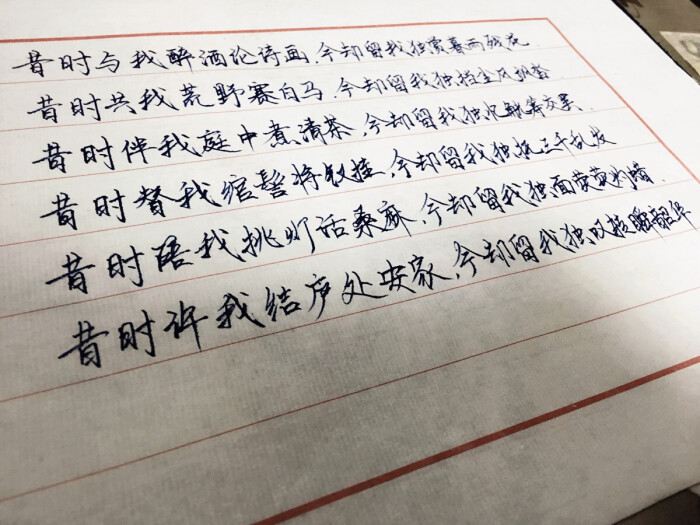 昔时与我醉酒论诗画,今却留我独赏暮雨残花
昔时共我荒野赛白马,今却留我独
昔时伴我庭中煮清茶,今却留我独忆觥筹交
昔时替我绾髻将钗挂,今却留我独挽三千乱发
昔时陪我挑灯话桑麻,今却留我独面
昔时许我结庐处安家,今却留我独叹